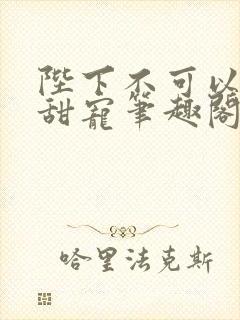 陛下不可以
甜寵筆趣閣
哈里法克斯